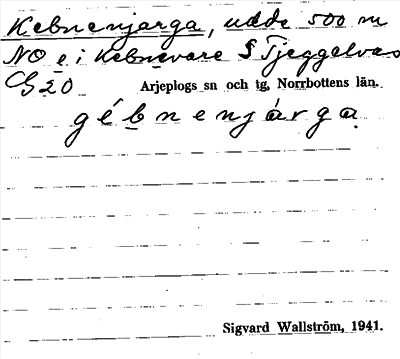 Kebnenjarga, udde 500 m
NO e i Kebnevare S Tjeggelvas
G20 Arjeplogs sn och tg, Norrbottens län.
gébnenjárga
Sigvard Wallström, 1941.